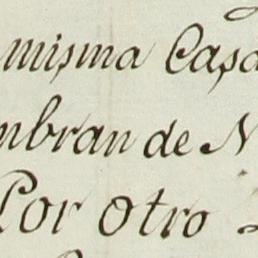 misma Casa
mbran de N
Por otro